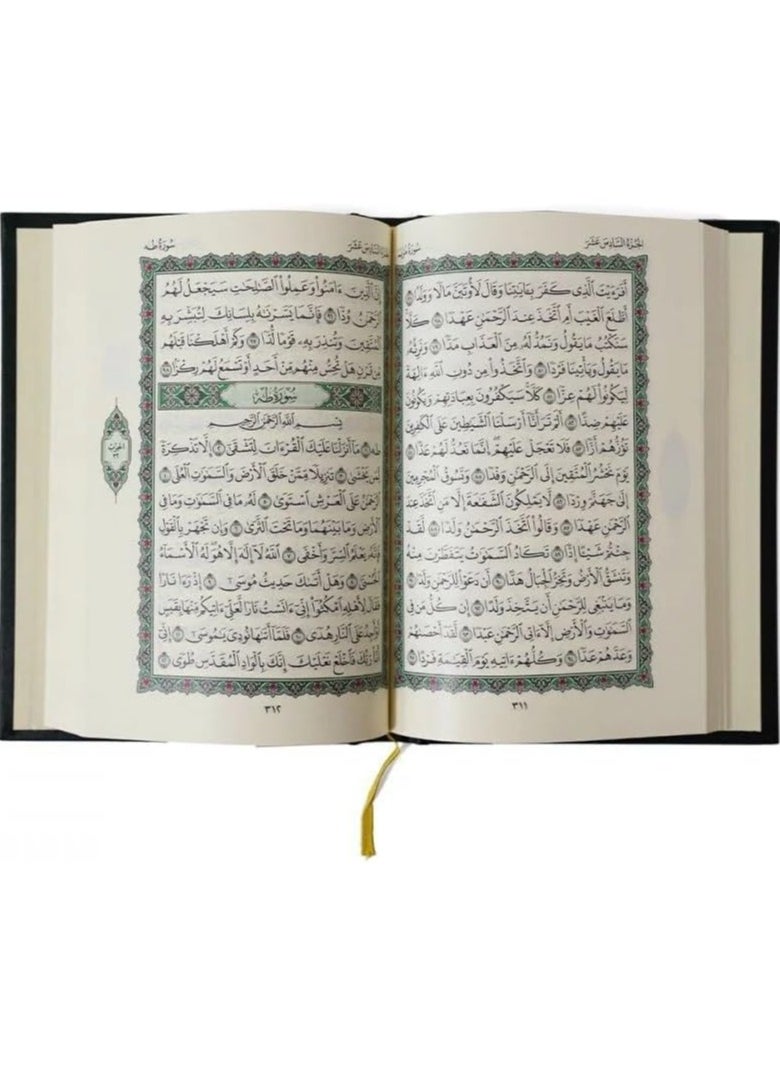 الجزء السادس عشر
سورة مريم
أَفَرَءَيْتَ ٱلَّذِى كَفَرَ بِـَٔايَـٰتِنَا وَقَالَ لَأُوتَيَنَّ مَالًا وَوَلَدًا ٧٧
أَطَّلَعَ ٱلْغَيْبَ أَمِ ٱتَّخَذَ عِندَ ٱلرَّحْمَـٰنِ عَهْدًا ٧٨ كَلَّا
سَنَكْتُبُ مَا يَقُولُ وَنَمُدُّ لَهُۥ مِنَ ٱلْعَذَابِ مَدًّا ٧٩ وَنَرِثُهُۥ
مَا يَقُولُ وَيَأْتِينَا فَرْدًا ٨٠ وَٱتَّخَذُوا۟ مِن دُونِ ٱللَّهِ ءَالِهَةً
لِّيَكُونُوا۟ لَهُمْ عِزًّا ٨١ كَلَّا سَيَكْفُرُونَ بِعِبَادَتِهِمْ وَيَكُونُونَ
عَلَيْهِمْ ضِدًّا ٨٢ أَلَمْ تَرَ أَنَّآ أَرْسَلْنَا ٱلشَّيَـٰطِينَ عَلَى ٱلْكَـٰفِرِينَ
تَؤُزُّهُمْ أَزًّا ٨٣ فَلَا تَعْجَلْ عَلَيْهِمْ إِنَّمَا نَعُدُّ لَهُمْ عَدًّا ٨٤
يَوْمَ نَحْشُرُ ٱلْمُتَّقِينَ إِلَى ٱلرَّحْمَـٰنِ وَفْدًا ٨٥ وَنَسُوقُ ٱلْمُجْرِمِينَ
إِلَىٰ جَهَنَّمَ وِرْدًا ٨٦ لَّا يَمْلِكُونَ ٱلشَّفَـٰعَةَ إِلَّا مَنِ ٱتَّخَذَ عِندَ
ٱلرَّحْمَـٰنِ عَهْدًا ٨٧ وَقَالُوا۟ ٱتَّخَذَ ٱلرَّحْمَـٰنُ وَلَدًا ٨٨ لَّقَدْ
جِئْتُمْ شَيْـًٔا إِدًّا ٨٩ تَكَادُ ٱلسَّمَـٰوَٰتُ يَتَفَطَّرْنَ مِنْهُ
وَتَنشَقُّ ٱلْأَرْضُ وَتَخِرُّ ٱلْجِبَالُ هَدًّا ٩٠ أَن دَعَوْا۟ لِلرَّحْمَـٰنِ وَلَدًا ٩١
وَمَا يَنۢبَغِى لِلرَّحْمَـٰنِ أَن يَتَّخِذَ وَلَدًا ٩٢ إِن كُلُّ مَن فِى
ٱلسَّمَـٰوَٰتِ وَٱلْأَرْضِ إِلَّآ ءَاتِى ٱلرَّحْمَـٰنِ عَبْدًا ٩٣ لَّقَدْ أَحْصَىٰهُمْ
وَعَدَّهُمْ عَدًّا ٩٤ وَكُلُّهُمْ ءَاتِيهِ يَوْمَ ٱلْقِيَـٰمَةِ فَرْدًا ٩٥
٣١١
السادس عشر
سورة طه
إِنَّ ٱلَّذِينَ ءَامَنُوا۟ وَعَمِلُوا۟ ٱلصَّـٰلِحَـٰتِ سَيَجْعَلُ لَهُمُ
ٱلرَّحْمَـٰنُ وُدًّا ٩٦ فَإِنَّمَا يَسَّرْنَـٰهُ بِلِسَانِكَ لِتُبَشِّرَ بِهِ
ٱلْمُتَّقِينَ وَتُنذِرَ بِهِۦ قَوْمًا لُّدًّا ٩٧ وَكَمْ أَهْلَكْنَا قَبْلَهُم
مِّن قَرْنٍ هَلْ تُحِسُّ مِنْهُم مِّنْ أَحَدٍ أَوْ تَسْمَعُ لَهُمْ رِكْزًۢا ٩٨
سورة طه
بِسْمِ ٱللَّهِ ٱلرَّحْمَـٰنِ ٱلرَّحِيمِ
طه ١ مَآ أَنزَلْنَا عَلَيْكَ ٱلْقُرْءَانَ لِتَشْقَىٰٓ ٢ إِلَّا تَذْكِرَةً
لِّمَن يَخْشَىٰ ٣ تَنزِيلًا مِّمَّنْ خَلَقَ ٱلْأَرْضَ وَٱلسَّمَـٰوَٰتِ ٱلْعُلَى ٤
ٱلرَّحْمَـٰنُ عَلَى ٱلْعَرْشِ ٱسْتَوَىٰ ٥ لَهُۥ مَا فِى ٱلسَّمَـٰوَٰتِ وَمَا فِى
ٱلْأَرْضِ وَمَا بَيْنَهُمَا وَمَا تَحْتَ ٱلثَّرَىٰ ٦ وَإِن تَجْهَرْ بِٱلْقَوْلِ
فَإِنَّهُۥ يَعْلَمُ ٱلسِّرَّ وَأَخْفَى ٧ ٱللَّهُ لَآ إِلَـٰهَ إِلَّا هُوَ لَهُ ٱلْأَسْمَآءُ
ٱلْحُسْنَىٰ ٨ وَهَلْ أَتَىٰكَ حَدِيثُ مُوسَىٰٓ ٩ إِذْ رَءَا نَارًا
فَقَالَ لِأَهْلِهِ ٱمْكُثُوٓا۟ إِنِّىٓ ءَانَسْتُ نَارًا لَّعَلِّىٓ ءَاتِيكُم مِّنْهَا بِقَبَسٍ
أَوْ أَجِدُ عَلَى ٱلنَّارِ هُدًى ١٠ فَلَمَّآ أَتَىٰهَا نُودِىَ يَـٰمُوسَىٰٓ ١١ إِنِّىٓ
أَنَا۠ رَبُّكَ فَٱخْلَعْ نَعْلَيْكَ إِنَّكَ بِٱلْوَادِ ٱلْمُقَدَّسِ طُوًى ١٢
الحزب
٣٢
٣١٢